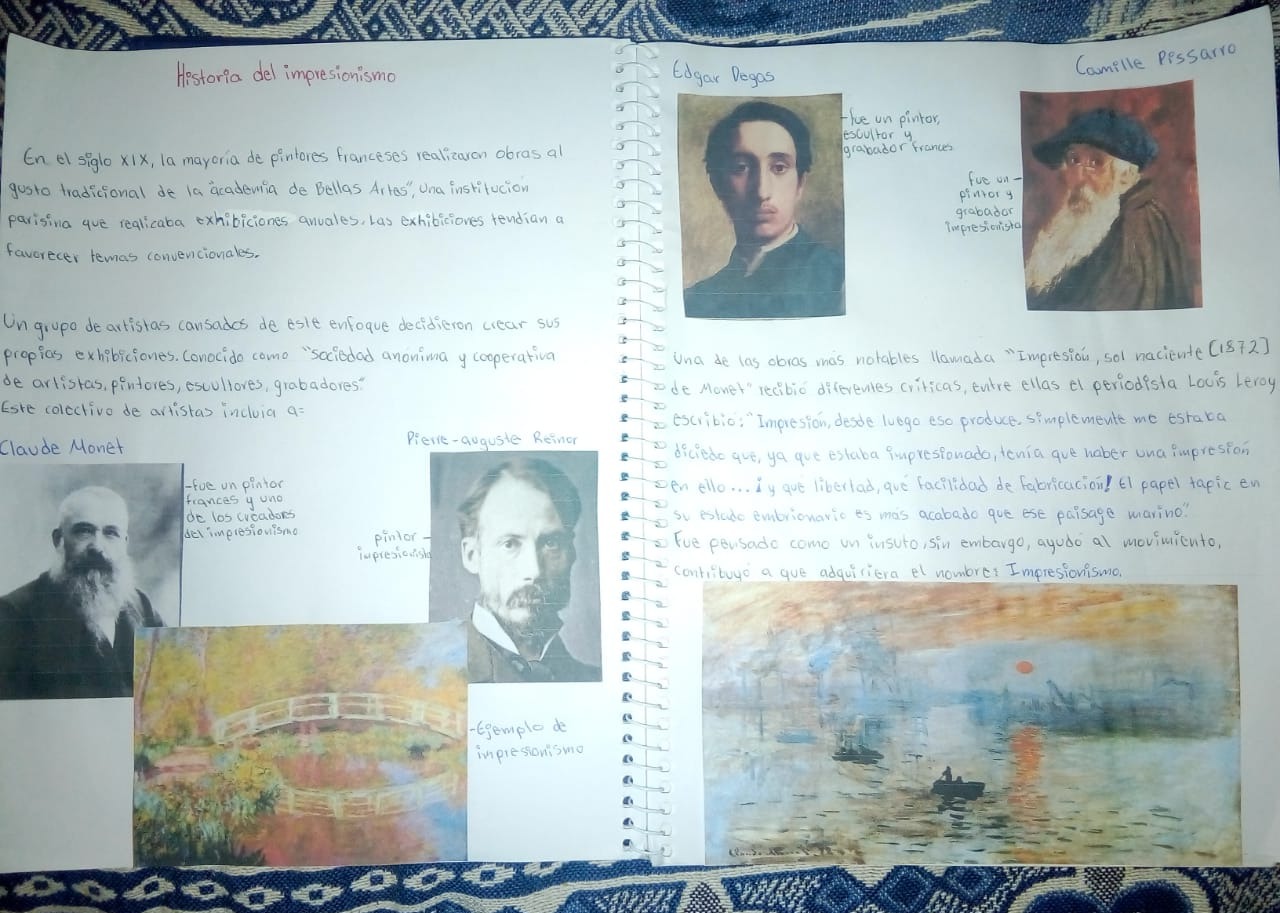 Historia del impresionismo
En el siglo XIX, la mayoría de pintores franceses realizaron obras al
gusto tradicional de la "academia de Bellas Artes", una institución
parisina que realizaba exhibiciones anuales. Las exhibiciones tendían a
favorecer temas convencionales.
Un grupo de artistas cansados de este enfoque decidieron crear sus
propias exhibiciones. Conocido como "Sociedad anónima y cooperativa
de artistas, pintores, escultores, grabadores."
Este colectivo de artistas incluía a:
Claude Monet
-fue un pintor
frances y uno
de los creadores
del impresionismo
Pierre-auguste Reinor
pintor -
impresionista
-Ejemplo de
impresionismo
Edgar Degas
-fue un pintor,
escultor y
grabador frances
Camille Pissarro
fue un -
pintor y
grabador
impresionista
Una de las obras más notables llamada "Impresión, sol naciente [1872]
de Monet" recibió diferentes críticas, entre ellas el periodista Louis Leroy
escribió: "Impresión, desde luego eso produce, simplemente me estaba
diciedo que, ya que estaba impresionado, tenía que haber una impresión
en ello... ¡y qué libertad, qué facilidad de fabricación! El papel tapic en
su estado embrionario es más acabado que ese paisaje marino".
Fue pensado como un insuto, sin embargo, ayudó al movimiento,
contribuyó a que adquiriera el nombre: Impresionismo.